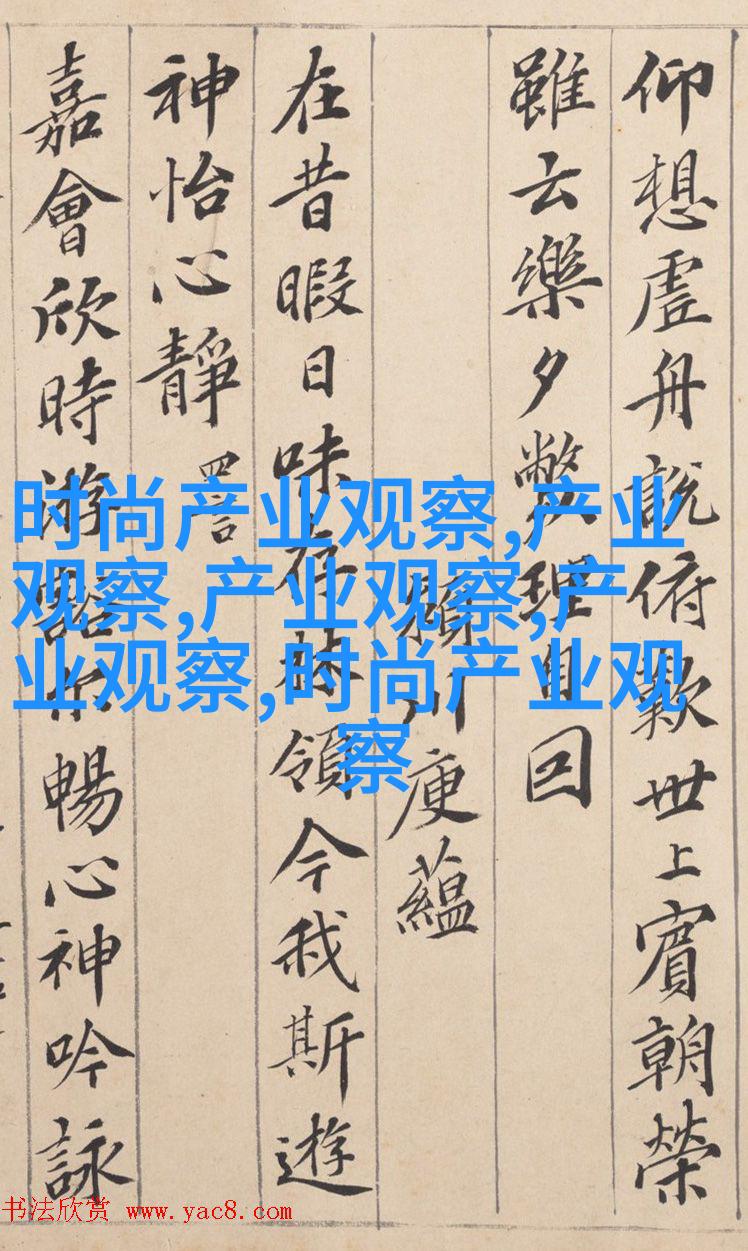 仰想虛舟說俯歎世上賓朝榮
雖云樂夕弊理自回
潁川庾蘊
在昔暇日味存林領今我斯遊
神怡心靜 四言
嘉會欣時游豁爾暢心神吟詠
时尚产业观察,产业
观察,产业观察,产
业观察,时尚产业观
察
书法欣赏 www.yac8.com